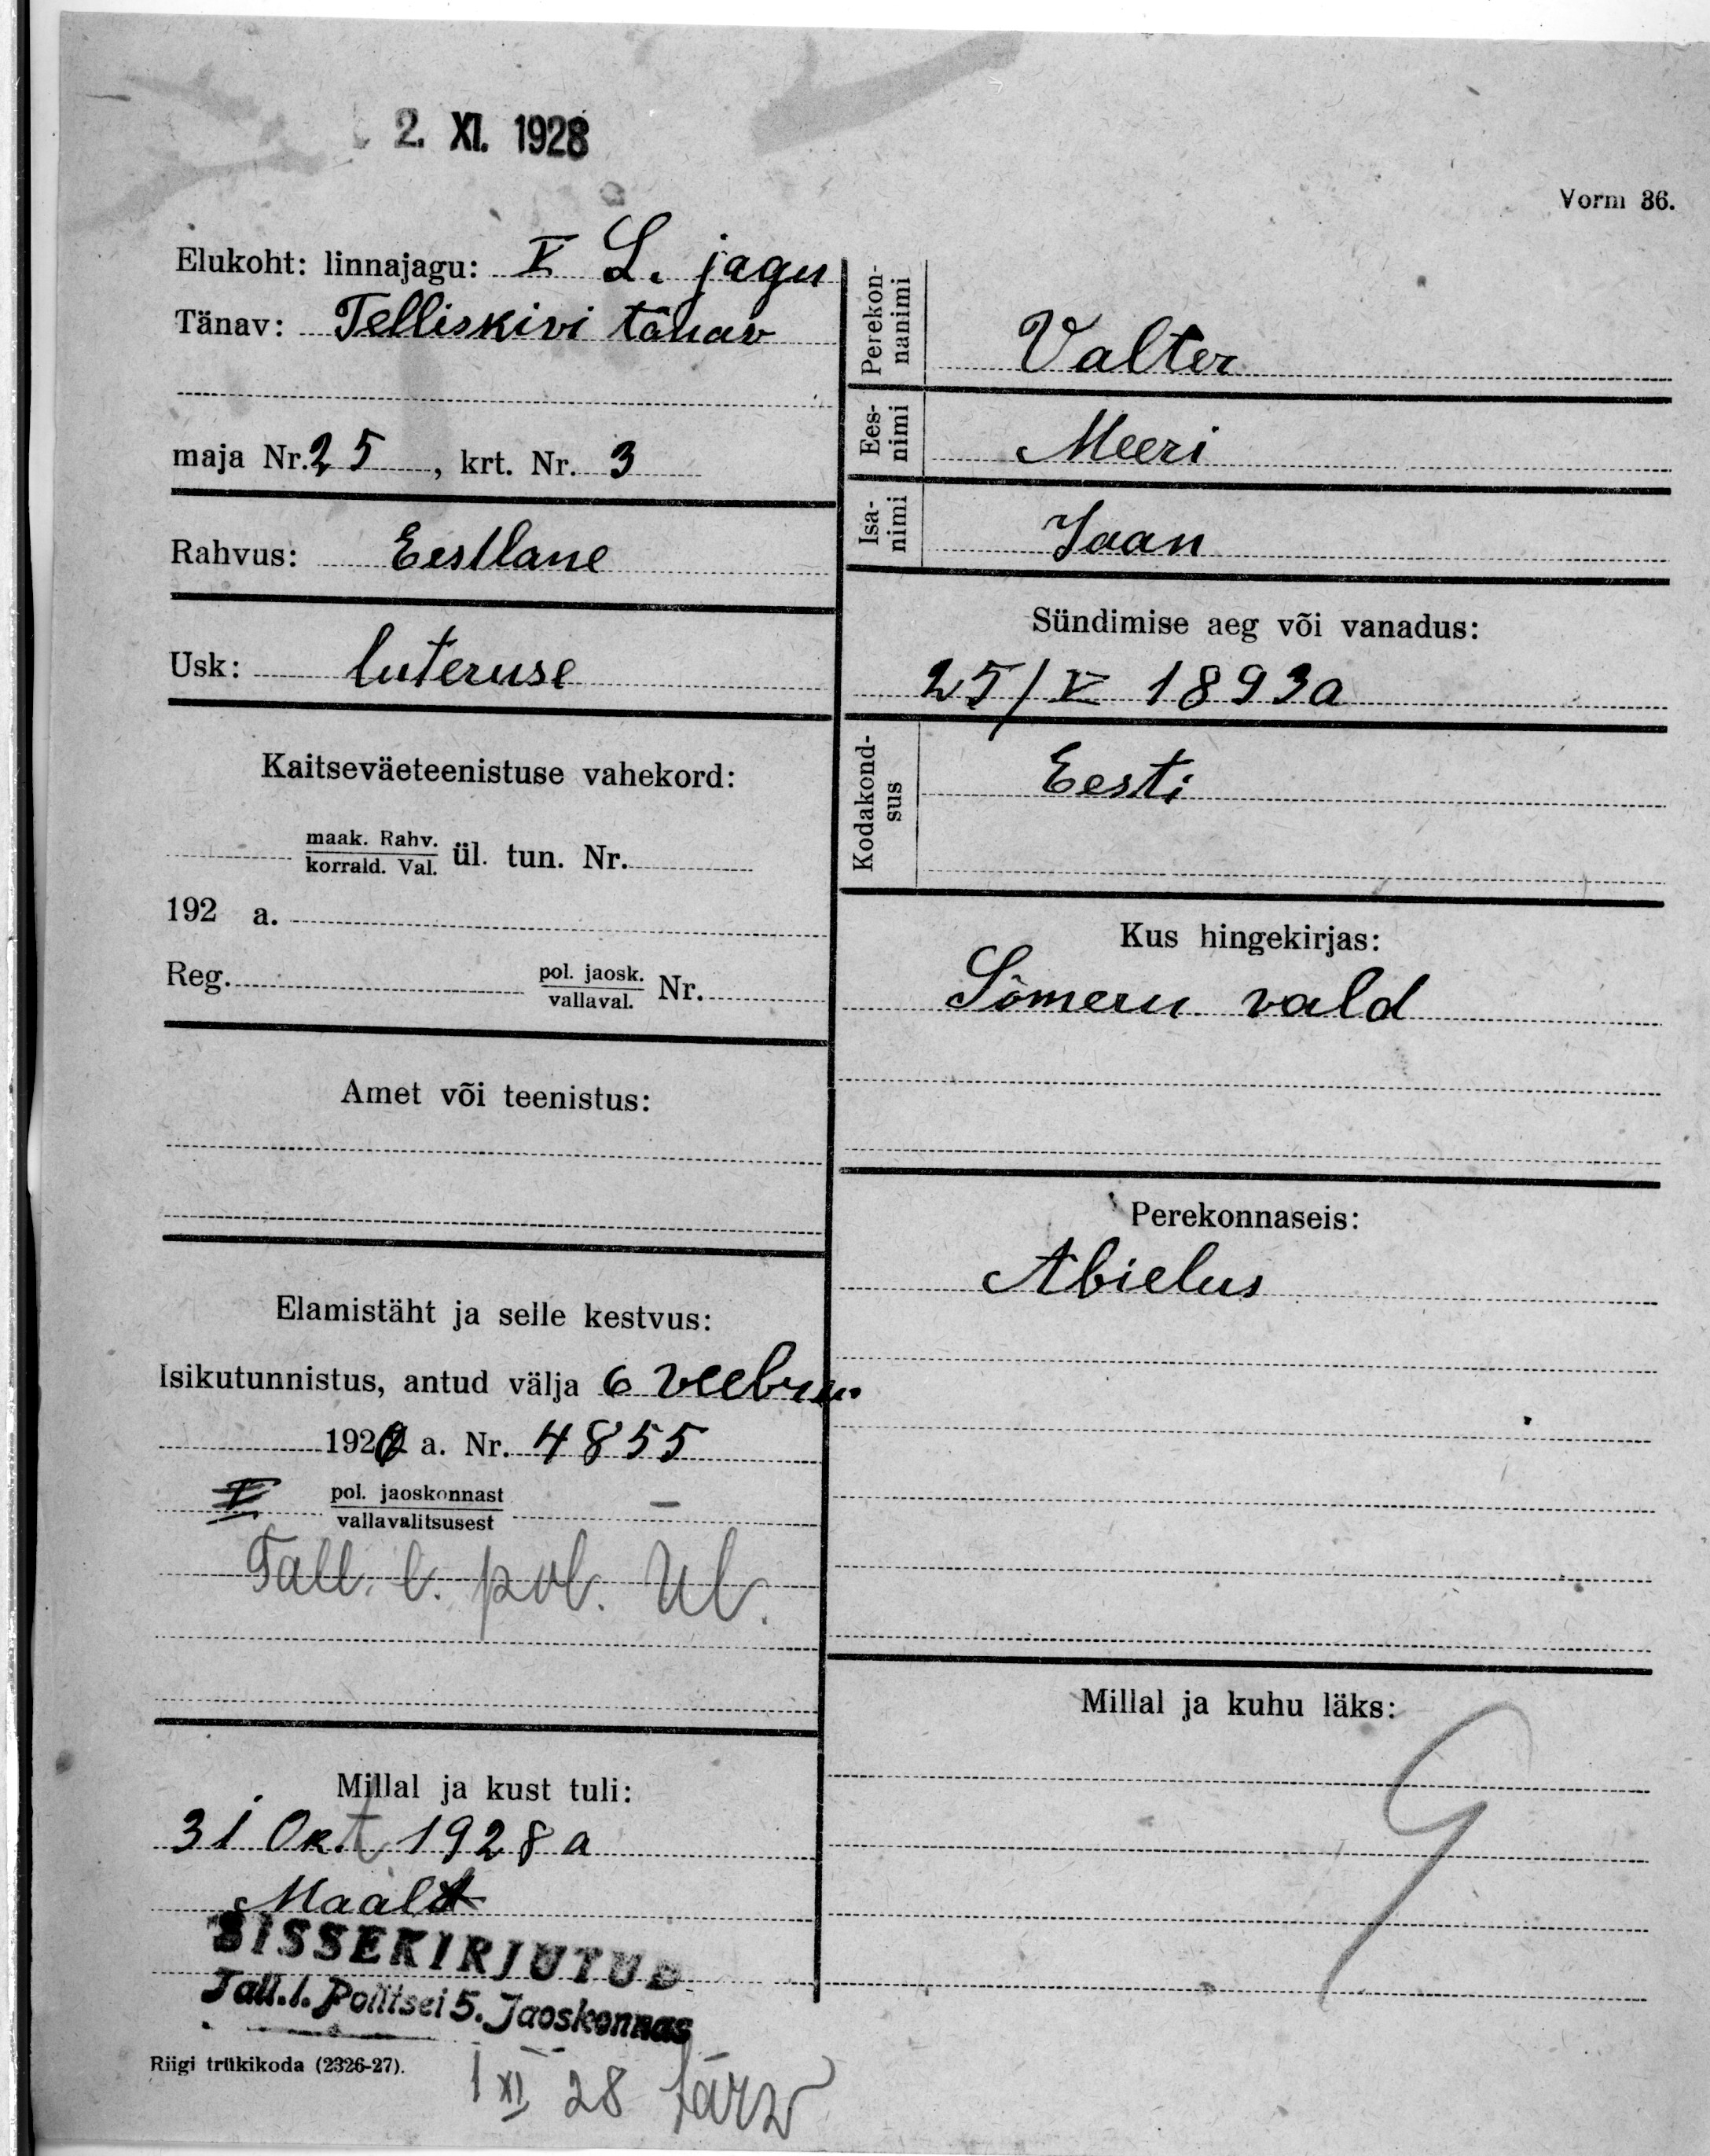 2. XI. 1928
Vorm 36.
Elukoht: linnajagu: V L. jagu
Tänav: Telliskivi tänav
maja Nr. 25, krt. Nr. 3
Rahvus: Eestlane
Usk: luteruse
Kaitseväeteenistuse vahekord:
maak. Rahv.
korrald. Val. ül. tun. Nr.
192 a.
Reg. pol. jaosk.
vallaval. Nr.
Amet või teenistus:
Elamistäht ja selle kestvus:
Isikutunnistus, antud välja 6 veebru.
192 a. Nr. 4855
V pol. jaoskonnast
vallavalitsusest –
Tall. l. pol. Ül.
Millal ja kust tuli:
31 Okt 1928 a
Maalt
SISSEKIRJUTUD
Tall. l. Politsei 5. Jaoskonnas
Riigi trükikoda (2326-27).
1 XI 28
Perekon-
nanimi
Valter
Ees-
nimi
Meeri
Isa-
nimi
Jaan
Sündimise aeg või vanadus:
25/V 1893a
Kodakond-
sus
Eesti
Kus hingekirjas:
Sõmeru vald
Perekonnaseis:
Abielus
Millal ja kuhu läks: